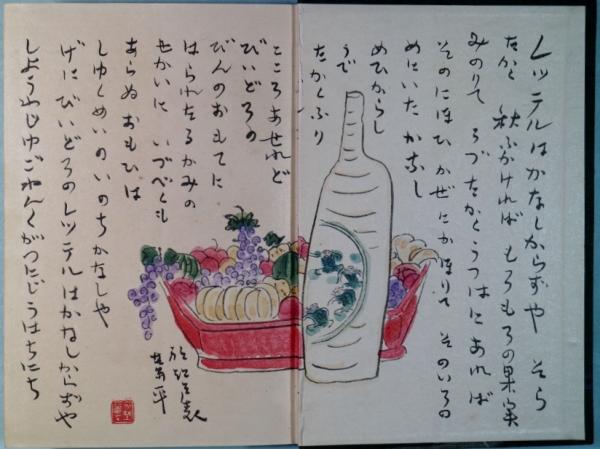 レッテルはかなしからずや そら
たかく 秋ふかければ もろもろの果実
みのりて うづたかくうつはにあれば
そのにほひ かぜにかほりて そのいろの
めにいた かなし
めひからし
うで
たかくふり
こころあせれど
びいどろの
びんのおもてに
はられたるかみの
せかいに いづべくも
あらぬおもひは
しゆくめいのいのちかなしや
げにびいどろのレッテルはかなしからずや
しようわじゆごねんくがつにじうはちにち